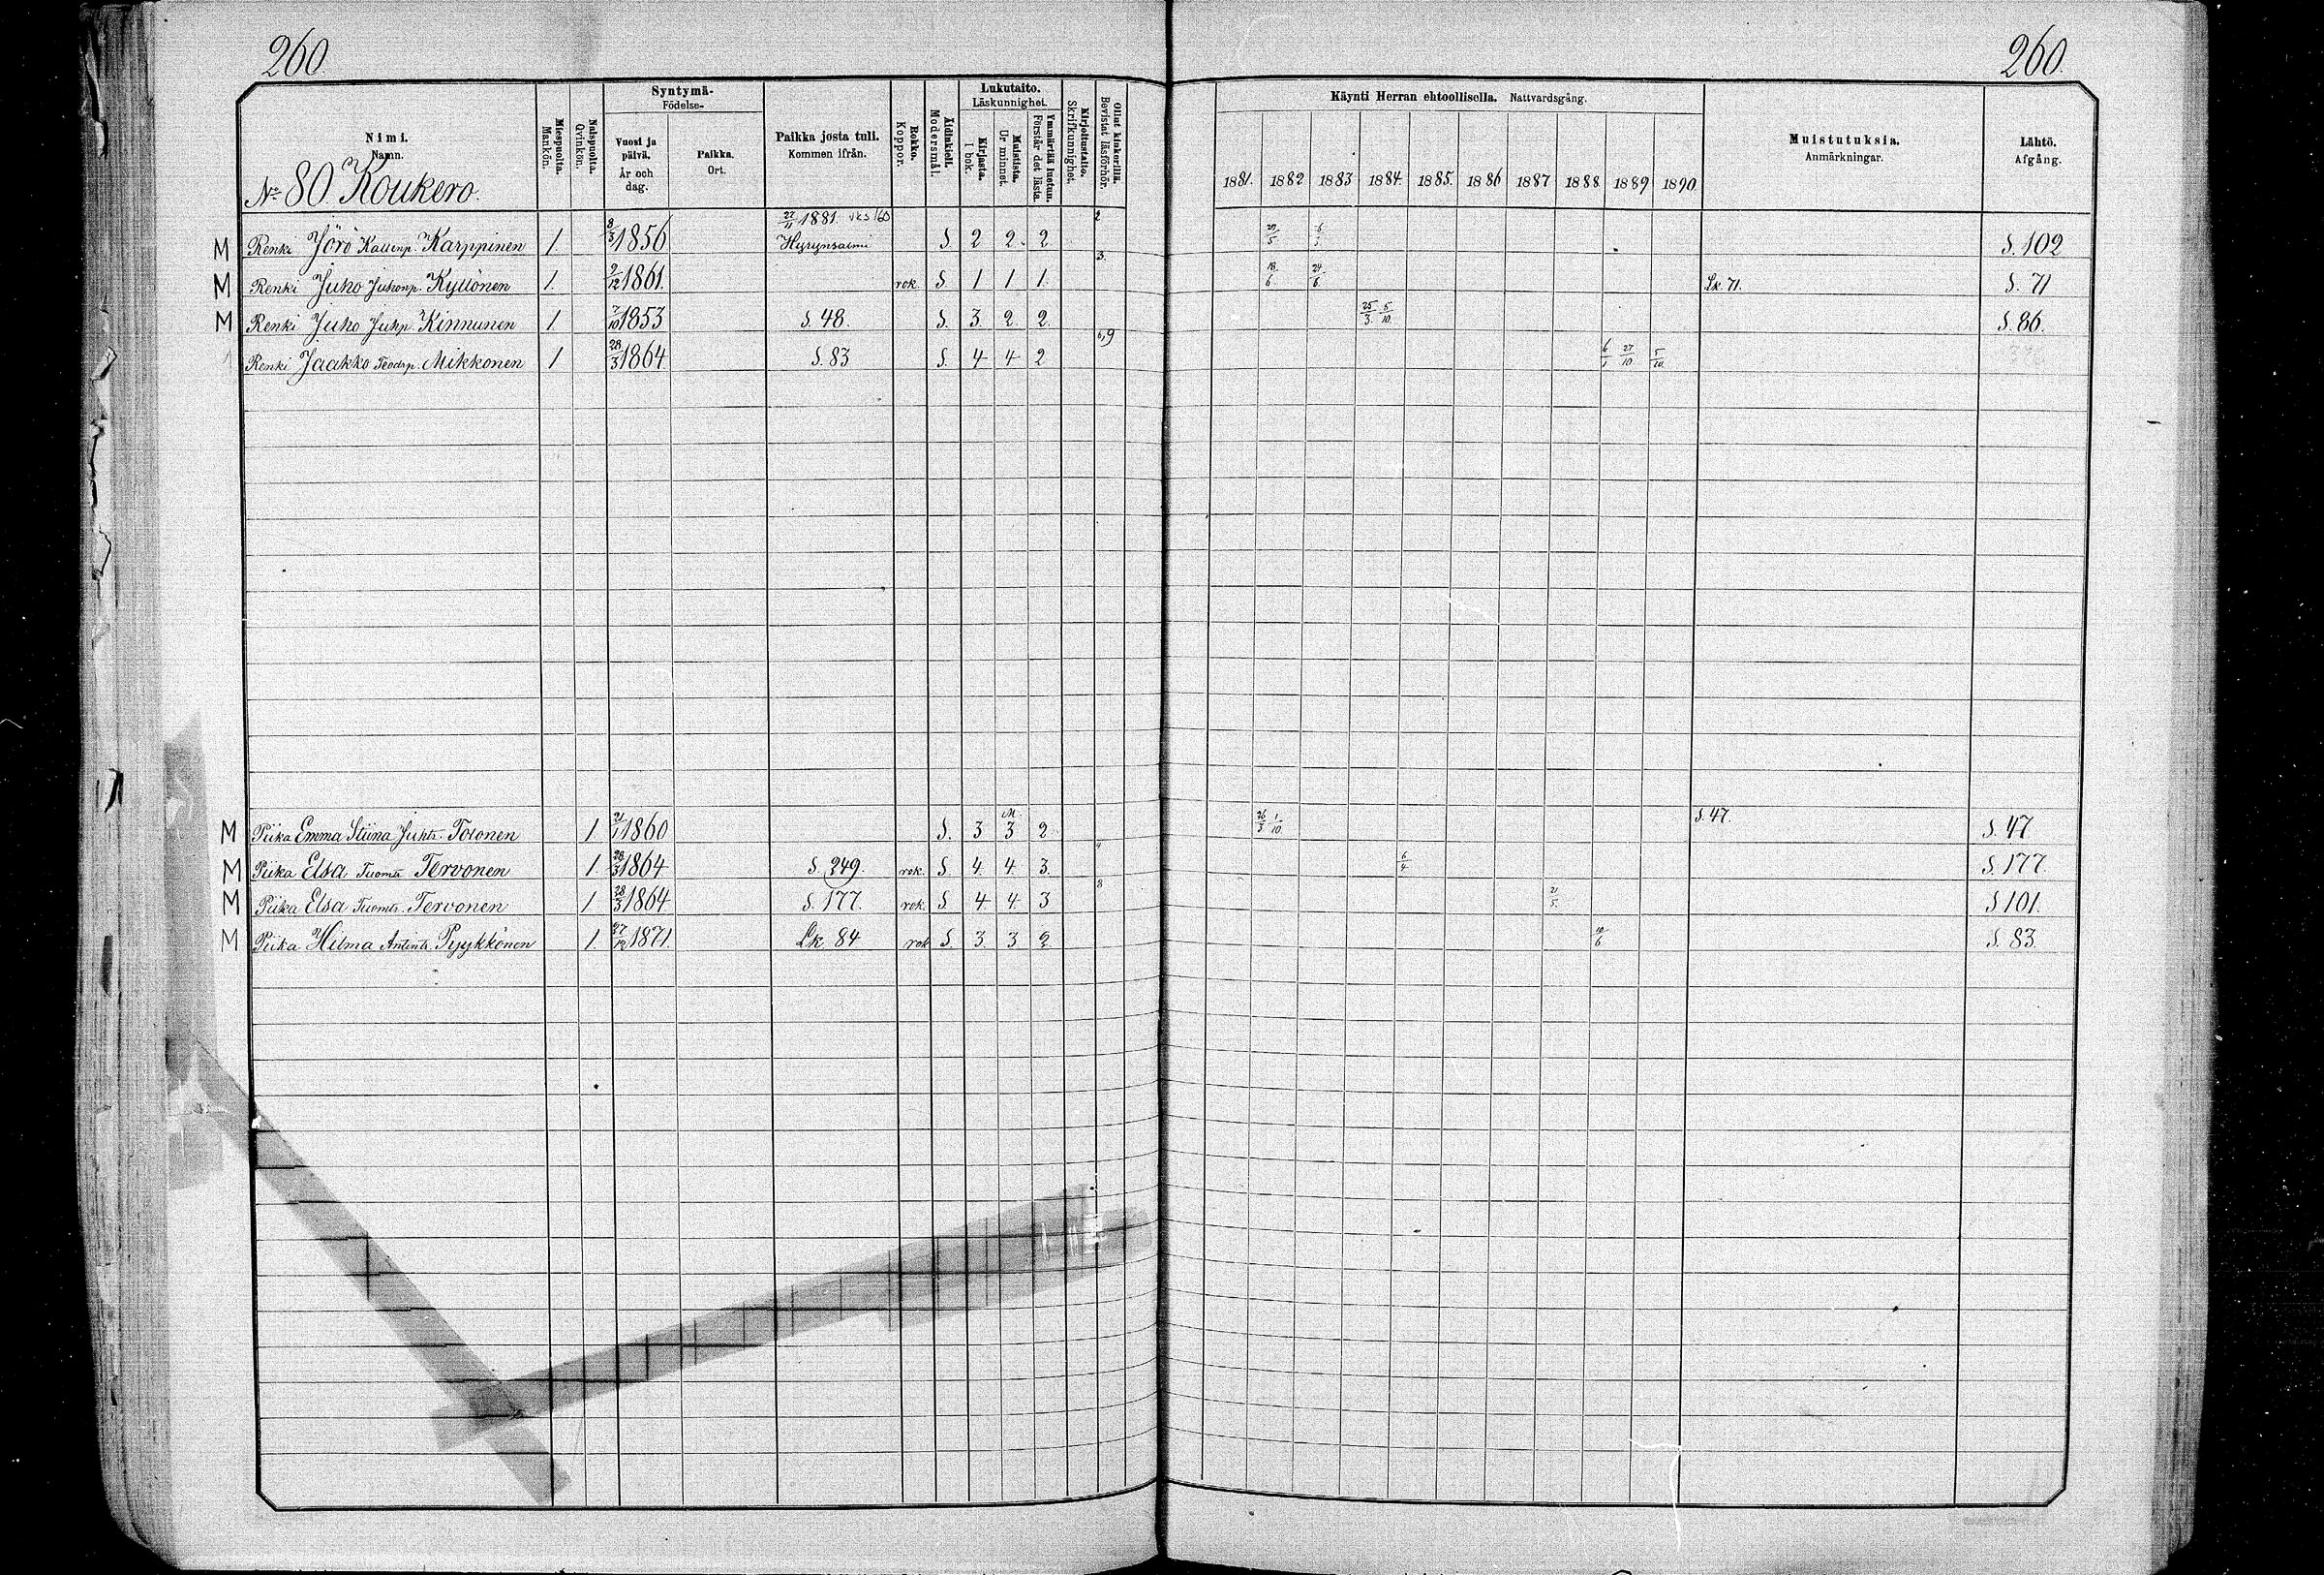 260.
260.
Nimi.
Namn.
Miespuolta.
Mankön.
Naispuolta.
Qvinkön.
Syntymä-
Födelse-
Vuosi ja päivä.
År och dag.
Paikka.
Ort.
Paikka josta tuli.
Kommen ifrån.
Rokko.
Koppor.
Äidinkieli.
Modersmål.
Lukutaito.
Läskunnighet.
Kirjasta.
I bok.
Muistista.
Ur minnet.
Ymmärtää luetun.
Förstår det lästa.
Kirjoitustaito.
Skrifkunnighet.
Ollut kinkerillä.
Bevistat läsförhör.
Käynti Herran ehtoollisella. Nattvardsgång.
1881. 1882 1883 1884. 1885. 1886 1887 1888 1889 1890.
Muistutuksia.
Anmärkningar.
Lähtö.
Afgång.
No 80 Koukero.
22/11 1881. vks 160 2
M Renki Jörö Kallenp. Karppinen 1. 8/3 1856 Hyrynsalmi S. 2 2. 2 S. 102
3.
M Renki Juho Juhonp. Kyllönen 1. 9/12 1861. rok. S. 1 1 1. 18/6 24/6 Lk. 71. S. 71
M Renki Juho Juhp. Kinnunen 1 7/10 1853 S. 48. S. 3. 2 2. 25/3. 5/10. S. 86.
6,9
Renki Jaakko Teodorp. Mikkonen 1 28/3 1864 S. 83 S. 4 4 2 6/1 27/10 5/10.
M Piika Emma Stiina Juhtr. Tolonen 1 21/1 1860 S. 3 3 2 26/3 1/10. S. 47. S. 47
4
M Piika Elsa Tuomtr Tervonen 1. 28/3 1864 S. 249. rok. S. 4. 4. 3. 6/4 S. 177.
8
M Piika Elsa Tuomtr. Tervonen 1 28/3 1864 S. 177. rok. S. 4 4. 3 21/5. S 101.
M Piika Hilma Antintr. Pyykkönen 1. 27/12 1871. Lk 84 rok S. 3. 3 2 S. 83.